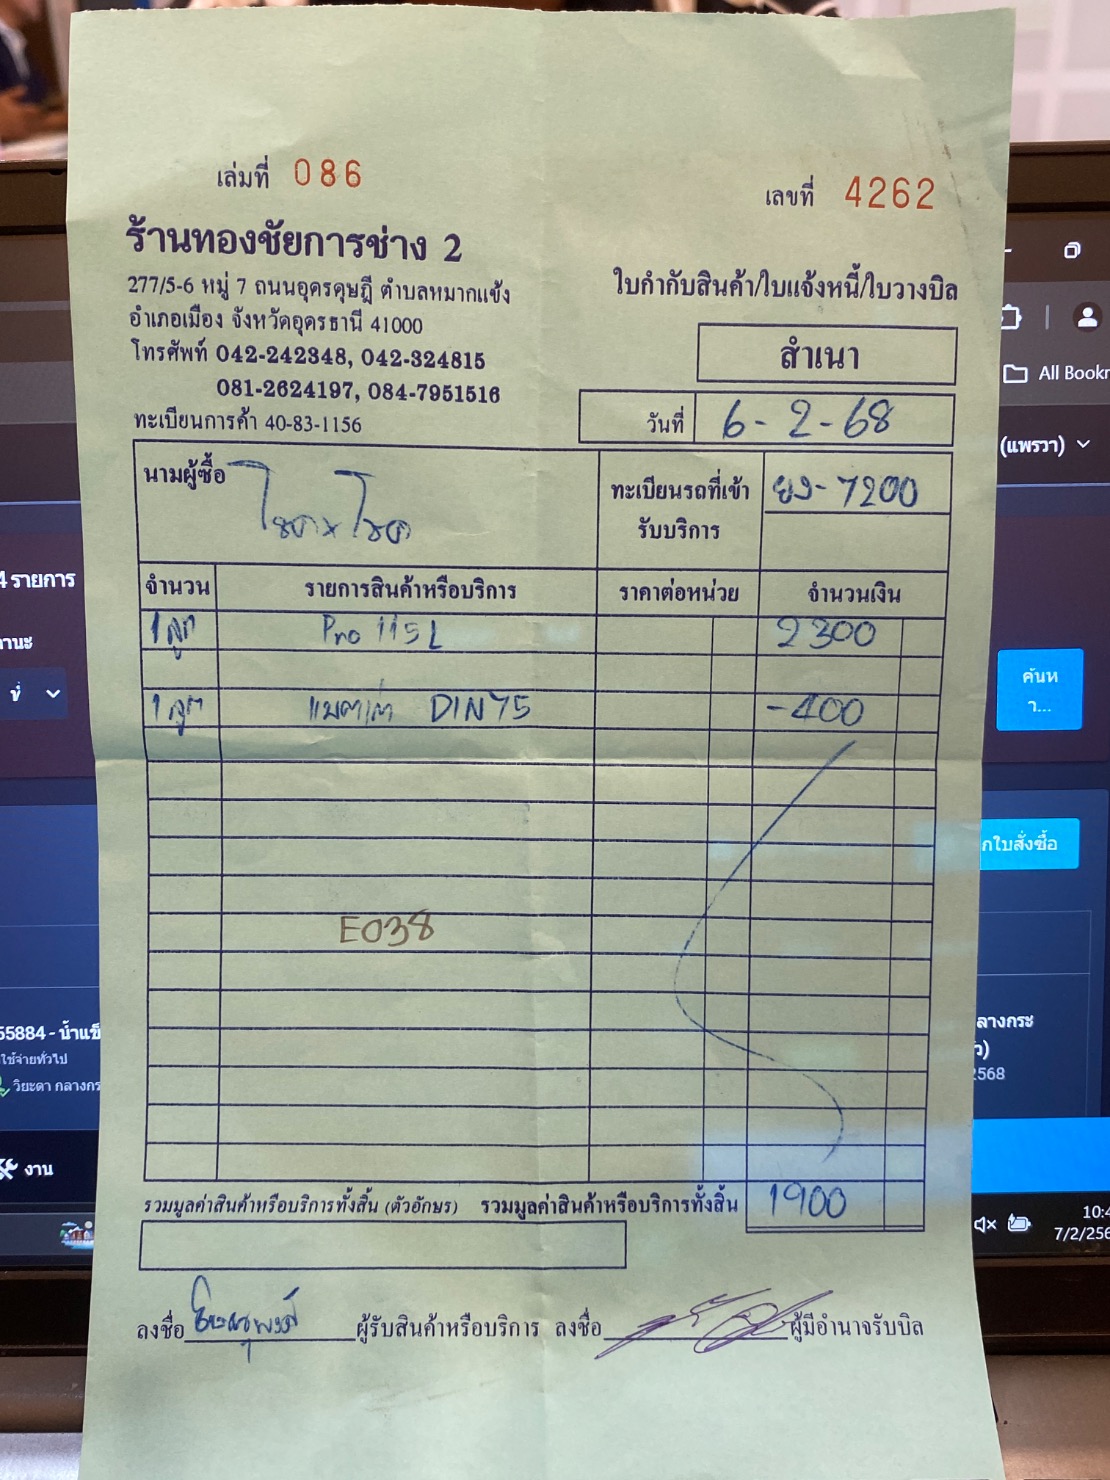 เล่มที่ 086
เลขที่ 4262
ร้านทองชัยการช่าง 2
277/5-6 หมู่ 7 ถนนอุดรดุษฎี ตำบลหมากแข้ง
อำเภอเมือง จังหวัดอุดรธานี 41000
โทรศัพท์ 042-242348, 042-324815
081-2624197, 084-7951516
ทะเบียนการค้า 40-83-1156
ใบกำกับสินค้า/ใบแจ้งหนี้/ใบวางบิล
สำเนา
วันที่ 6-2-68
นามผู้ซื้อ
ทะเบียนรถที่เข้า
รับบริการ
7200
จำนวน รายการสินค้าหรือบริการ ราคาต่อหน่วย จำนวนเงิน
1 ลูก Pro 115L 2300
1 ลูก แบตเก่า DIN75 -400
E038
รวมมูลค่าสินค้าหรือบริการทั้งสิ้น (ตัวอักษร) รวมมูลค่าสินค้าหรือบริการทั้งสิ้น 1900
ลงชื่อ ผู้รับสินค้าหรือบริการ ลงชื่อ ผู้มีอำนาจรับบิล
All Bookr
(แพรวา)
4 รายการ
านะ
ค้นห
า...
กใบสั่งซื้อ
55884 - น้ำแข็
ใช้จ่ายทั่วไป
วิยะดา กลางกร
ลางกระ
2568
งาน
10:4
7/2/256